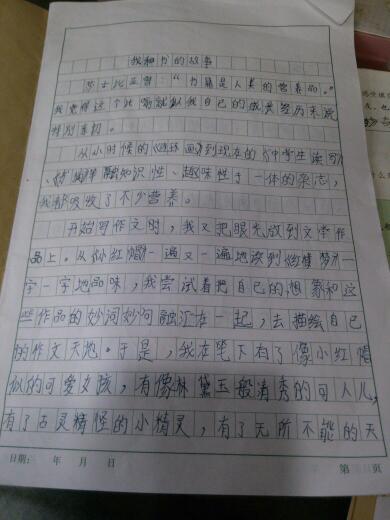 我和书的故事
莎士比亚曾：“书籍是人类的营养品。”
我觉得这个比喻就从我自己的成长经历来说
特别亲切。
从小时候的《连环画》到现在的《中学生读写》
融知识性、趣味性于一体的杂志，
我都吸收了不少营养。
开始写作文时，我又把眼光放到文学作
品上。从《小红帽》一遍又一遍地读到《红楼梦》一
字一字地品味，我尝试着把自己的想象和这
些作品的妙词妙句融汇在一起，去描绘自己
的作文天地。于是，我在笔下有了像小红帽
似的可爱女孩，有像林黛玉般清秀的可人儿，
有了古灵精怪的小精灵，有了无所不能的天
日期： 年 月 日 第 页